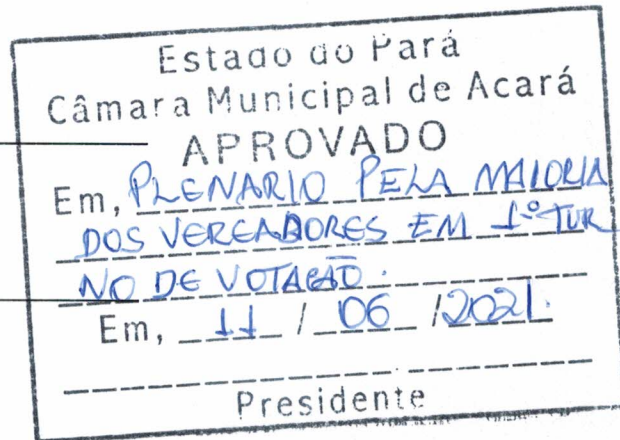 Estado do Pará
Câmara Municipal de Acará
APROVADO
Em, PLENARIO PELA MAIORIA
DOS VEREADORES EM 1º TUR
NO DE VOTAÇÃO.
Em, 11 / 06 / 2021.
Presidente